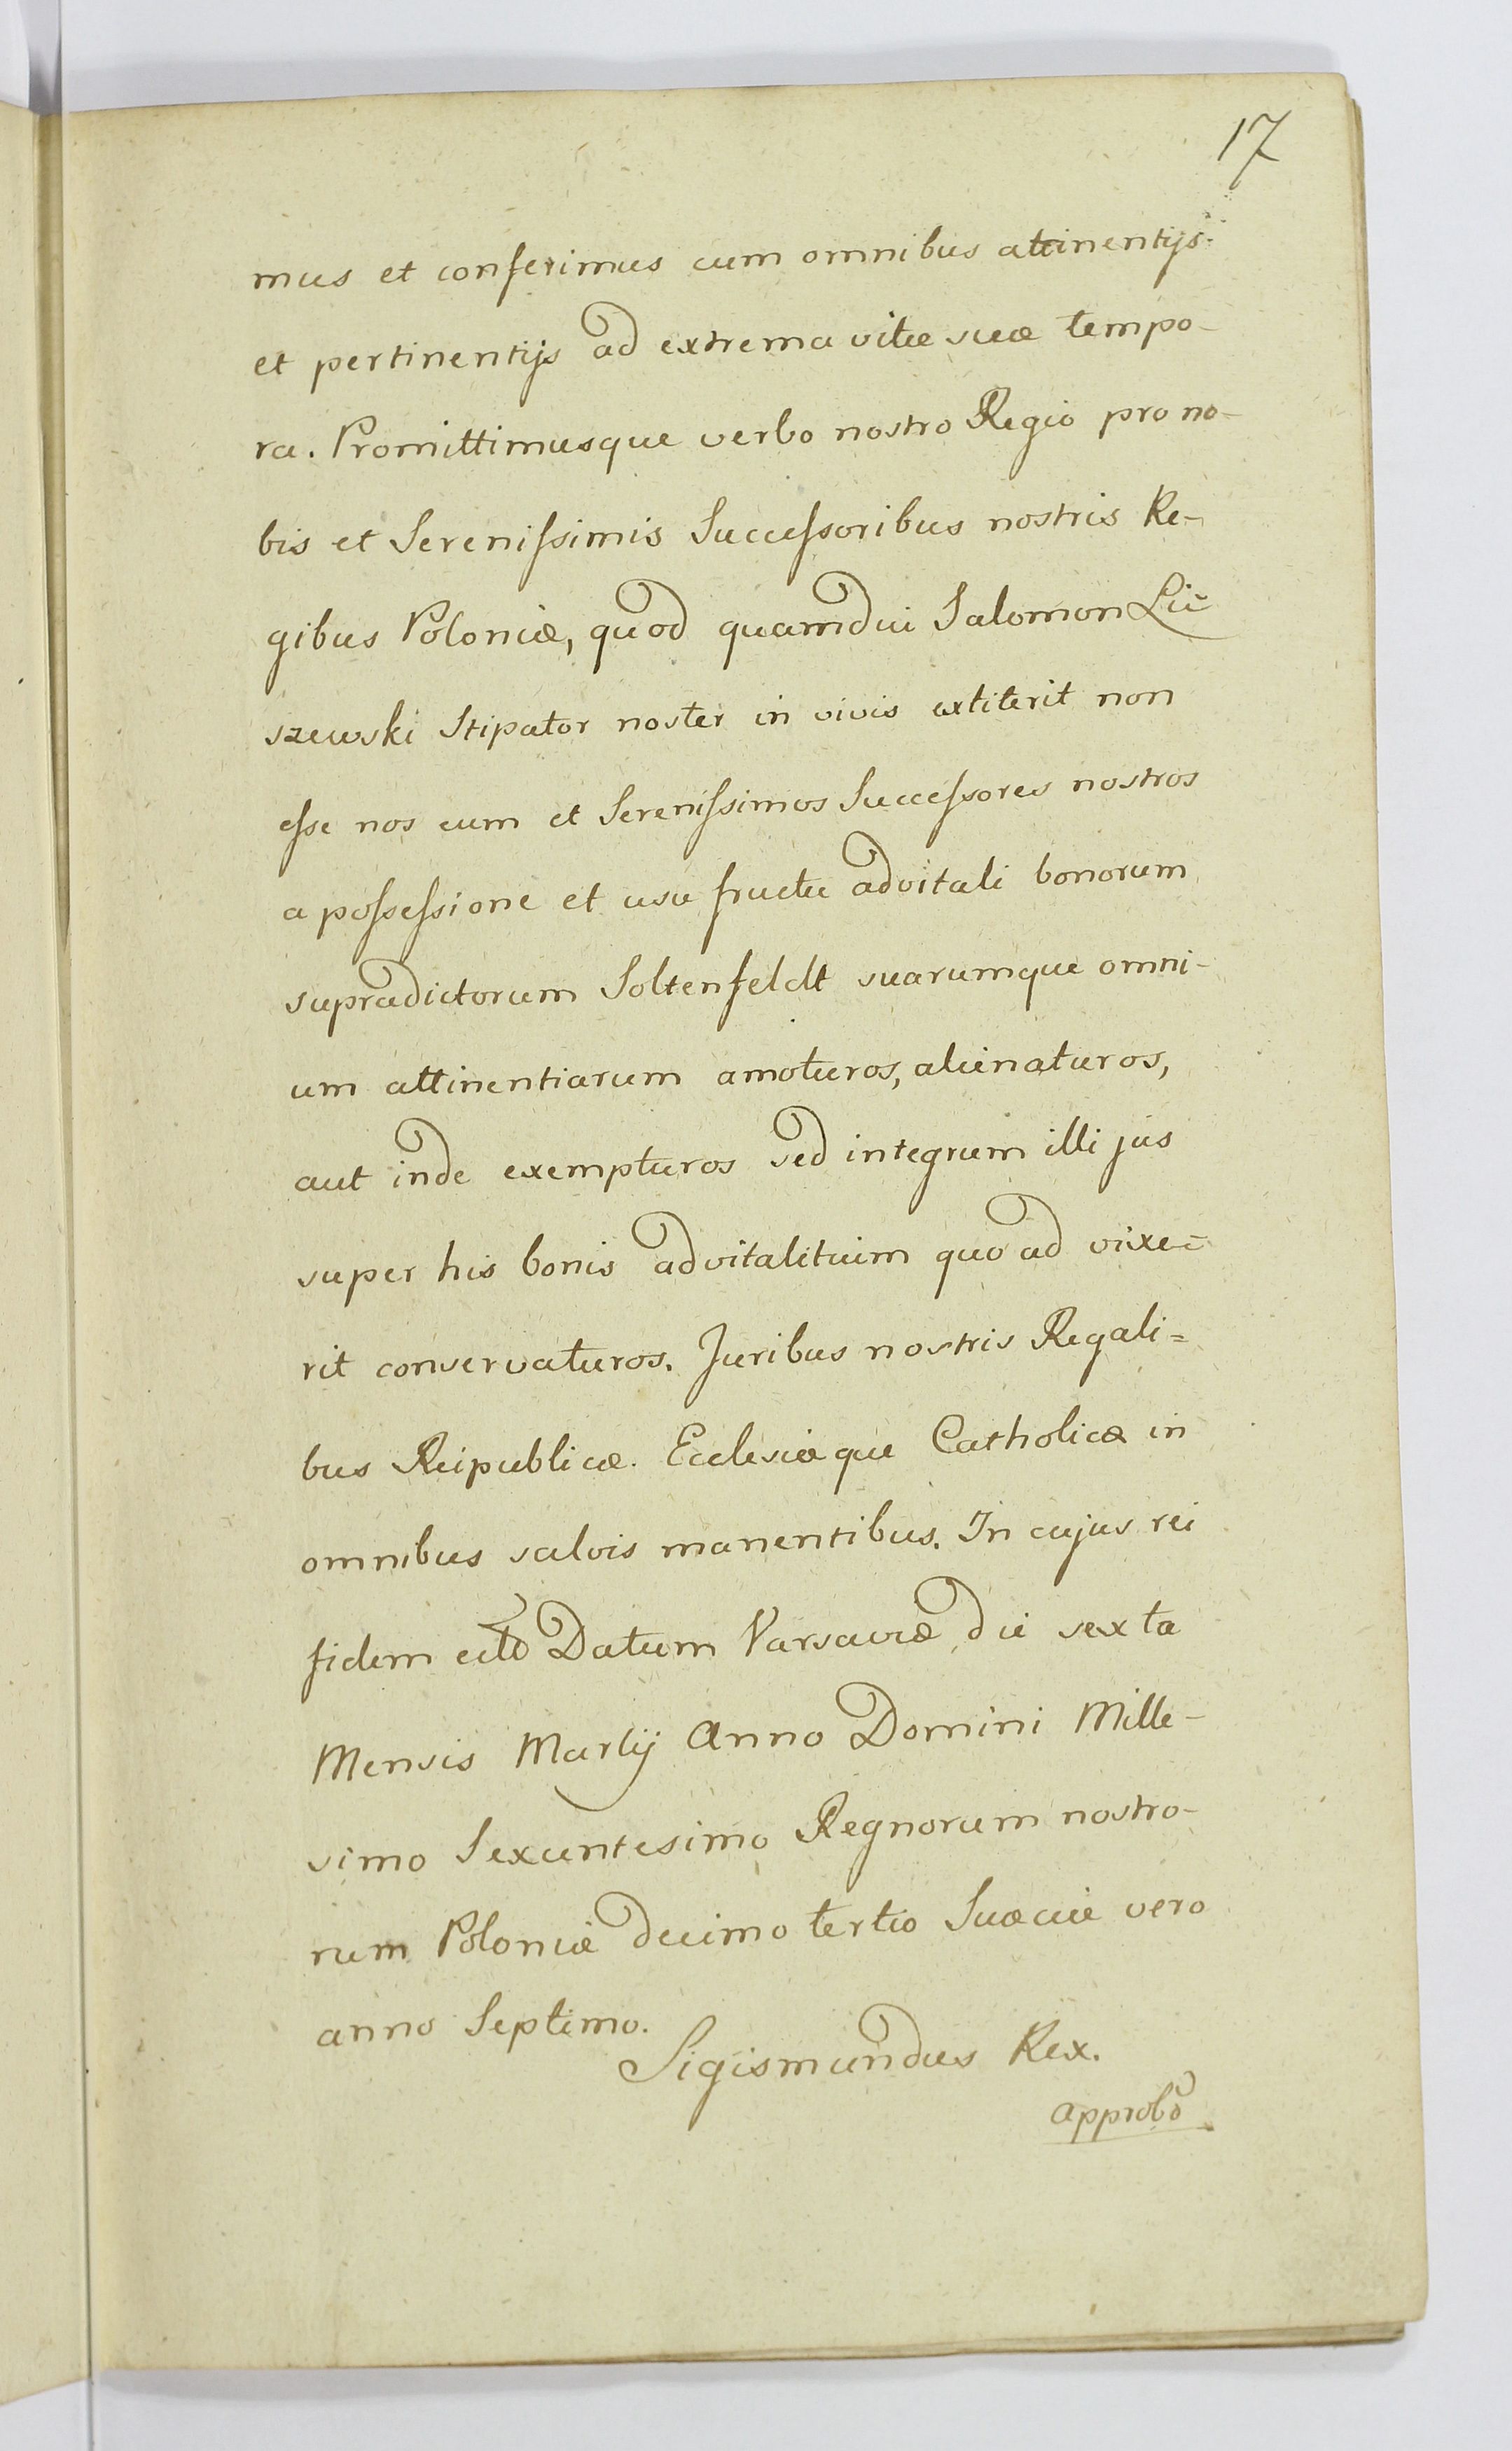 17
mus et conferimus cum omnibus attinentijs
et pertinentijs ad extrema vitæ suæ tempo-
ra. Promittimusque verbo nostro Regio pro no-
bis et Serenißimis Succeßoribus nostris Re-
gibus Poloniæ, quod quamdiu Salomon Li-
szewski Stipator noster in vivis extiterit non
eße nos eum et Serenißimos Succeßores nostros
a poßeßione et usu fructu advitali bonorum
supradictorum Soltenfeldt suarumque omni-
um attinentiarum amoturos, alienaturos,
aut inde exempturos sed integrum illi jus
super his bonis advitalitium quo ad vixe-
rit conservaturos. Juribus nostris Regali=
bus Reipublicæ. Ecclesiæque Catholicæ in
omnibus salvis manentibus. In cujus rei
fidem Datum Varsaviæ die sexta
Mensis Martij Anno Domini Mille-
simo Sexcentesimo Regnorum nostro-
rum Poloniæ decimo tertio Suæciæ vero
anno Septimo.
Sigismundus Rex.
approbo